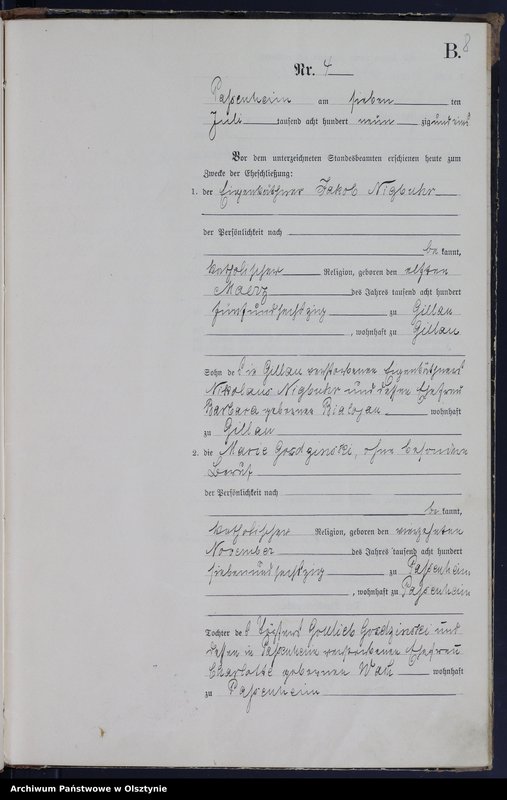 B. 8
Nr. 4
Passenheim am sieben ten
Juli tausend acht hundert neun zig und eins
Vor dem unterzeichneten Standesbeamten erschienen heute zum
Zwecke der Eheschließung:
1. der Eigenkäthner Jakob Nigbuhr
der Persönlichkeit nach
be kannt,
katholischer Religion, geboren den elften
Maerz des Jahres tausend acht hundert
fünfundsechszig zu Gillau
, wohnhaft zu Gillau
Sohn des in Gillau verstorbenen Eigenkäthners
Nikolaus Nigbuhr und dessen Ehefrau
Barbara geborenen Bialojan wohnhaft
zu Gillau
2. die Marie Gosdzinski, ohne besonderen
Beruf
der Persönlichkeit nach
be kannt,
katholischer Religion, geboren den vierzehnten
November des Jahres tausend acht hundert
siebenundsechszig zu Passenheim
, wohnhaft zu Passenheim
Tochter des Töpfers Gottlieb Gosdzinski und
dessen in Passenheim verstorbenen Ehefrau
Charlotte geborenen wohnhaft
zu Passenheim
Archiwum Państwowe w Olsztynie